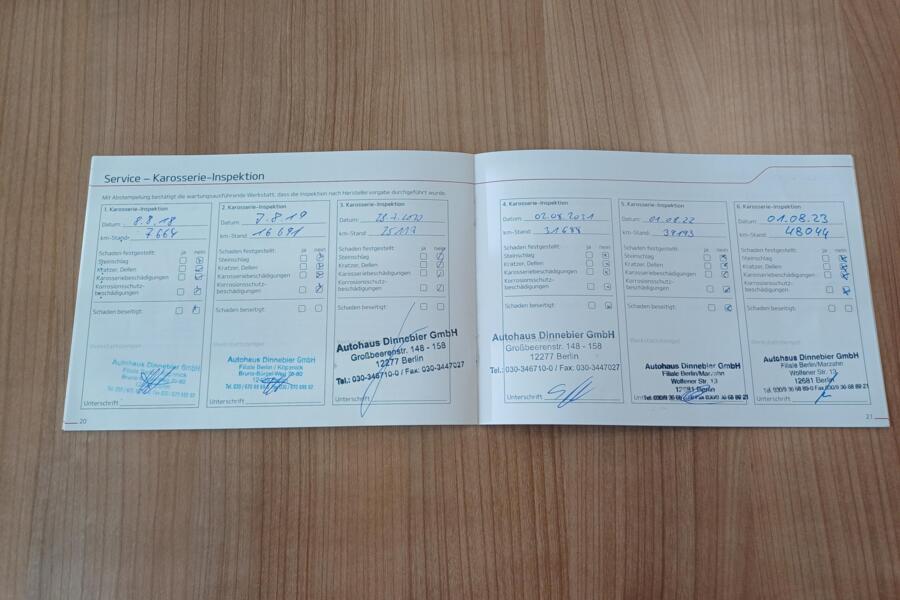 Service – Karosserie-Inspektion
Mit Abstempelung bestätigt die wartungsausführende Werkstatt, dass die Inspektion nach Herstellervorgabe durchgeführt wurde.
1. Karosserie-Inspektion
Datum: 8.8.18
km-Stand: 7664
Schaden festgestellt: ja nein
Steinschlag
Kratzer, Dellen
Karosseriebeschädigungen
Korrosionsschutz-
beschädigungen
Schaden beseitigt:
Werkstattstempel
Autohaus Dinnebier GmbH
Unterschrift
2. Karosserie-Inspektion
Datum: 7.8.19
km-Stand: 16691
Schaden festgestellt: ja nein
Steinschlag
Kratzer, Dellen
Karosseriebeschädigungen
Korrosionsschutz-
beschädigungen
Schaden beseitigt:
Werkstattstempel
Autohaus Dinnebier GmbH
Filiale Berlin / Köpenick
Bruno-Bürgel-Weg
Unterschrift
3. Karosserie-Inspektion
Datum:
km-Stand
Schaden festgestellt: ja nein
Steinschlag
Kratzer, Dellen
Karosseriebeschädigungen
Korrosionsschutz-
beschädigungen
Schaden beseitigt:
Autohaus Dinnebier GmbH
Großbeerenstr. 148 - 158
12277 Berlin
Tel.: 030-346710-0 / Fax: 030-3447027
Unterschrift
20
4. Karosserie-Inspektion
Datum: 02.08.2021
km-Stand:
Schaden festgestellt: ja nein
Steinschlag
Kratzer, Dellen
Karosseriebeschädigungen
Korrosionsschutz-
beschädigungen
Schaden beseitigt:
Autohaus Dinnebier GmbH
Großbeerenstr. 148 - 158
12277 Berlin
Tel.: 030-346710-0 / Fax: 030-3447027
Unterschrift
5. Karosserie-Inspektion
Datum: 01.08.22
km-Stand: 39193
Schaden festgestellt: ja nein
Steinschlag
Kratzer, Dellen
Karosseriebeschädigungen
Korrosionsschutz-
beschädigungen
Schaden beseitigt:
Autohaus Dinnebier GmbH
Filiale Berlin/Marzahn
Wolfener Str. 13
12681 Berlin
Unterschrift
6. Karosserie-Inspektion
Datum: 01.08.23
km-Stand: 48044
Schaden festgestellt: ja nein
Steinschlag
Kratzer, Dellen
Karosseriebeschädigungen
Korrosionsschutz-
beschädigungen
Schaden beseitigt:
Autohaus Dinnebier GmbH
Filiale Berlin/Marzahn
Wolfener Str. 13
12681 Berlin
Unterschrift
21